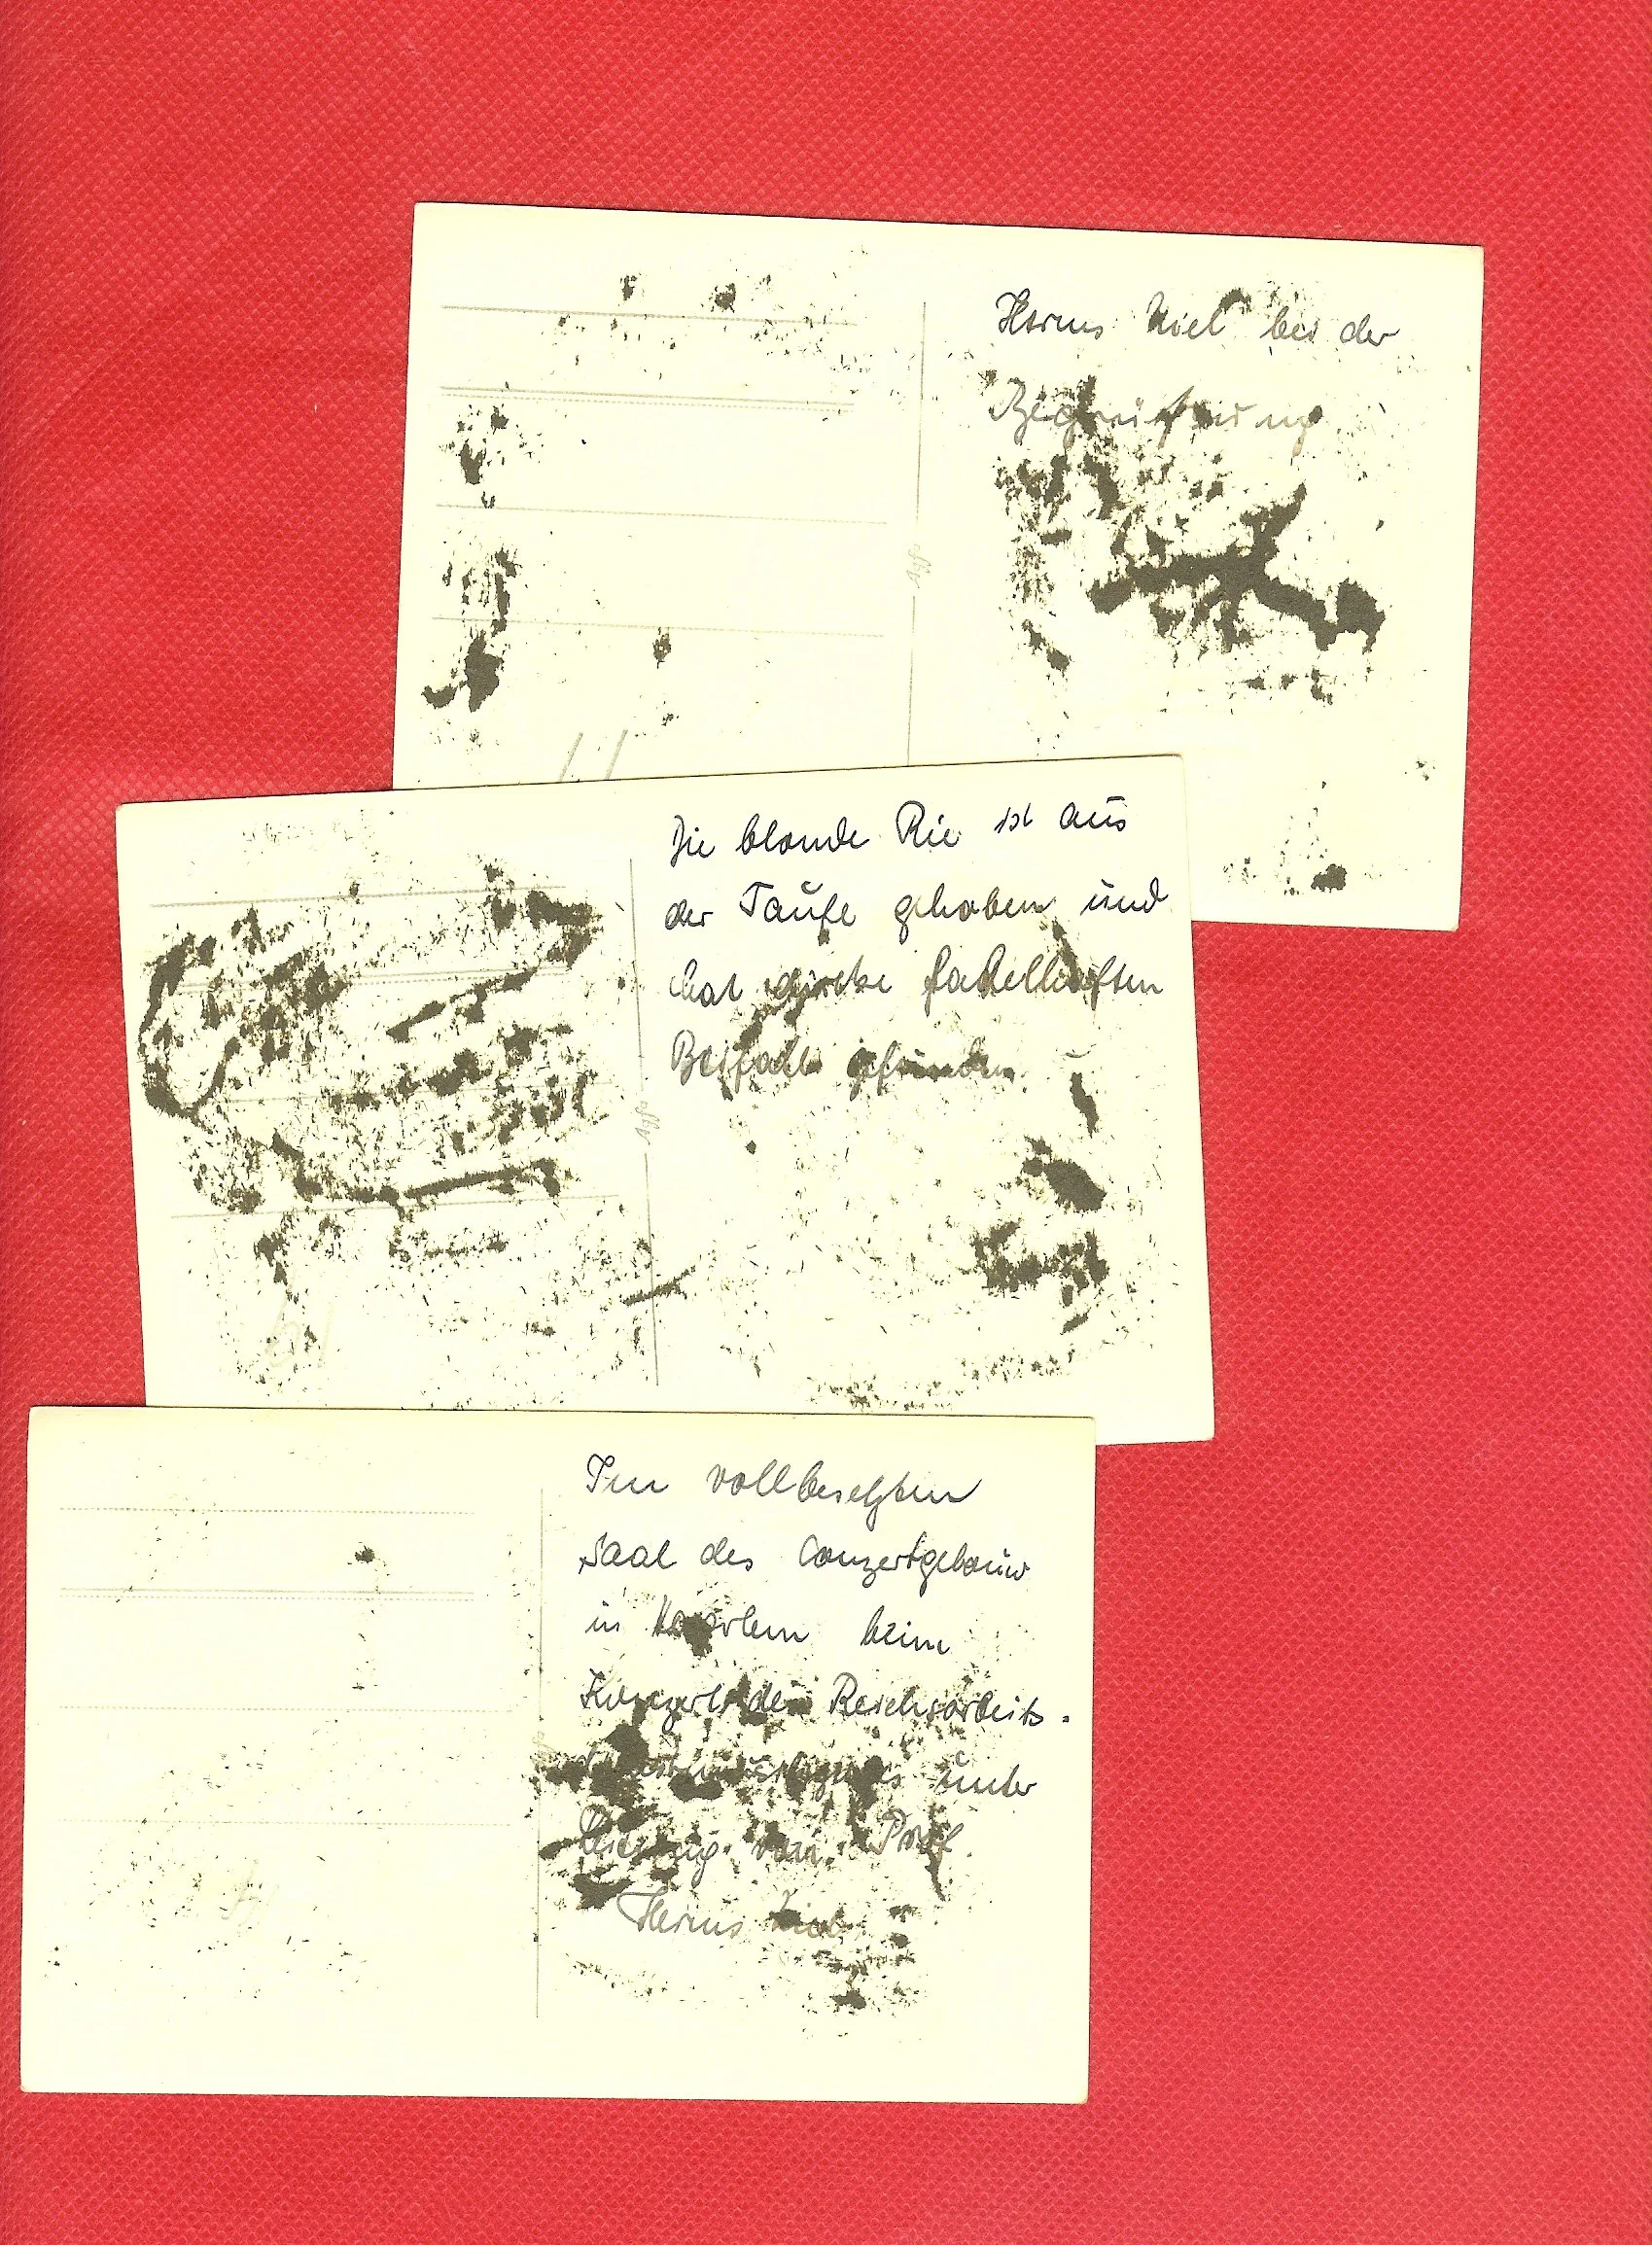 Herms Niel bei der
Begrüßung
Die blonde Rie ist aus
der Taufe gehoben und
hat fabelhaften
Beifall gefunden.
Im vollbesetzten
Saal des Conzertgebouw
in Haarlem beim
Konzert des Reichsarbeits-
unter
Leitung von Prof.
Herms Niel